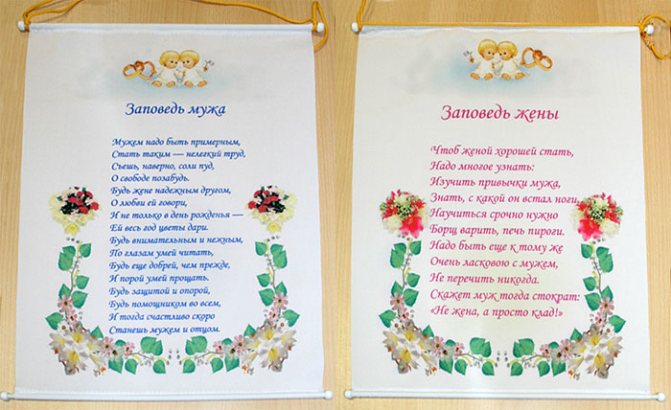 Заповедь мужа
Мужем надо быть примерным,
Стать таким — нелегкий труд,
Съешь, наверно, соли пуд,
О свободе позабудь.
Будь жене надежным другом,
О любви ей говори,
И не только в день рожденья —
Ей весь год цветы дари.
Будь внимательным и нежным,
По глазам умей читать,
Будь еще добрей, чем прежде,
И порой умей прощать.
Будь защитой и опорой,
Будь помощником во всем,
И тогда счастливо скоро
Станешь мужем и отцом.
Заповедь жены
Чтоб женой хорошей стать,
Надо многое узнать:
Изучить привычки мужа,
Знать, с какой он встал ноги,
Научиться срочно нужно
Борщ варить, печь пироги.
Надо быть еще к тому же
Очень ласковою с мужем,
Не перечить никогда.
Скажет муж тогда стократ:
«Не жена, а просто клад!»